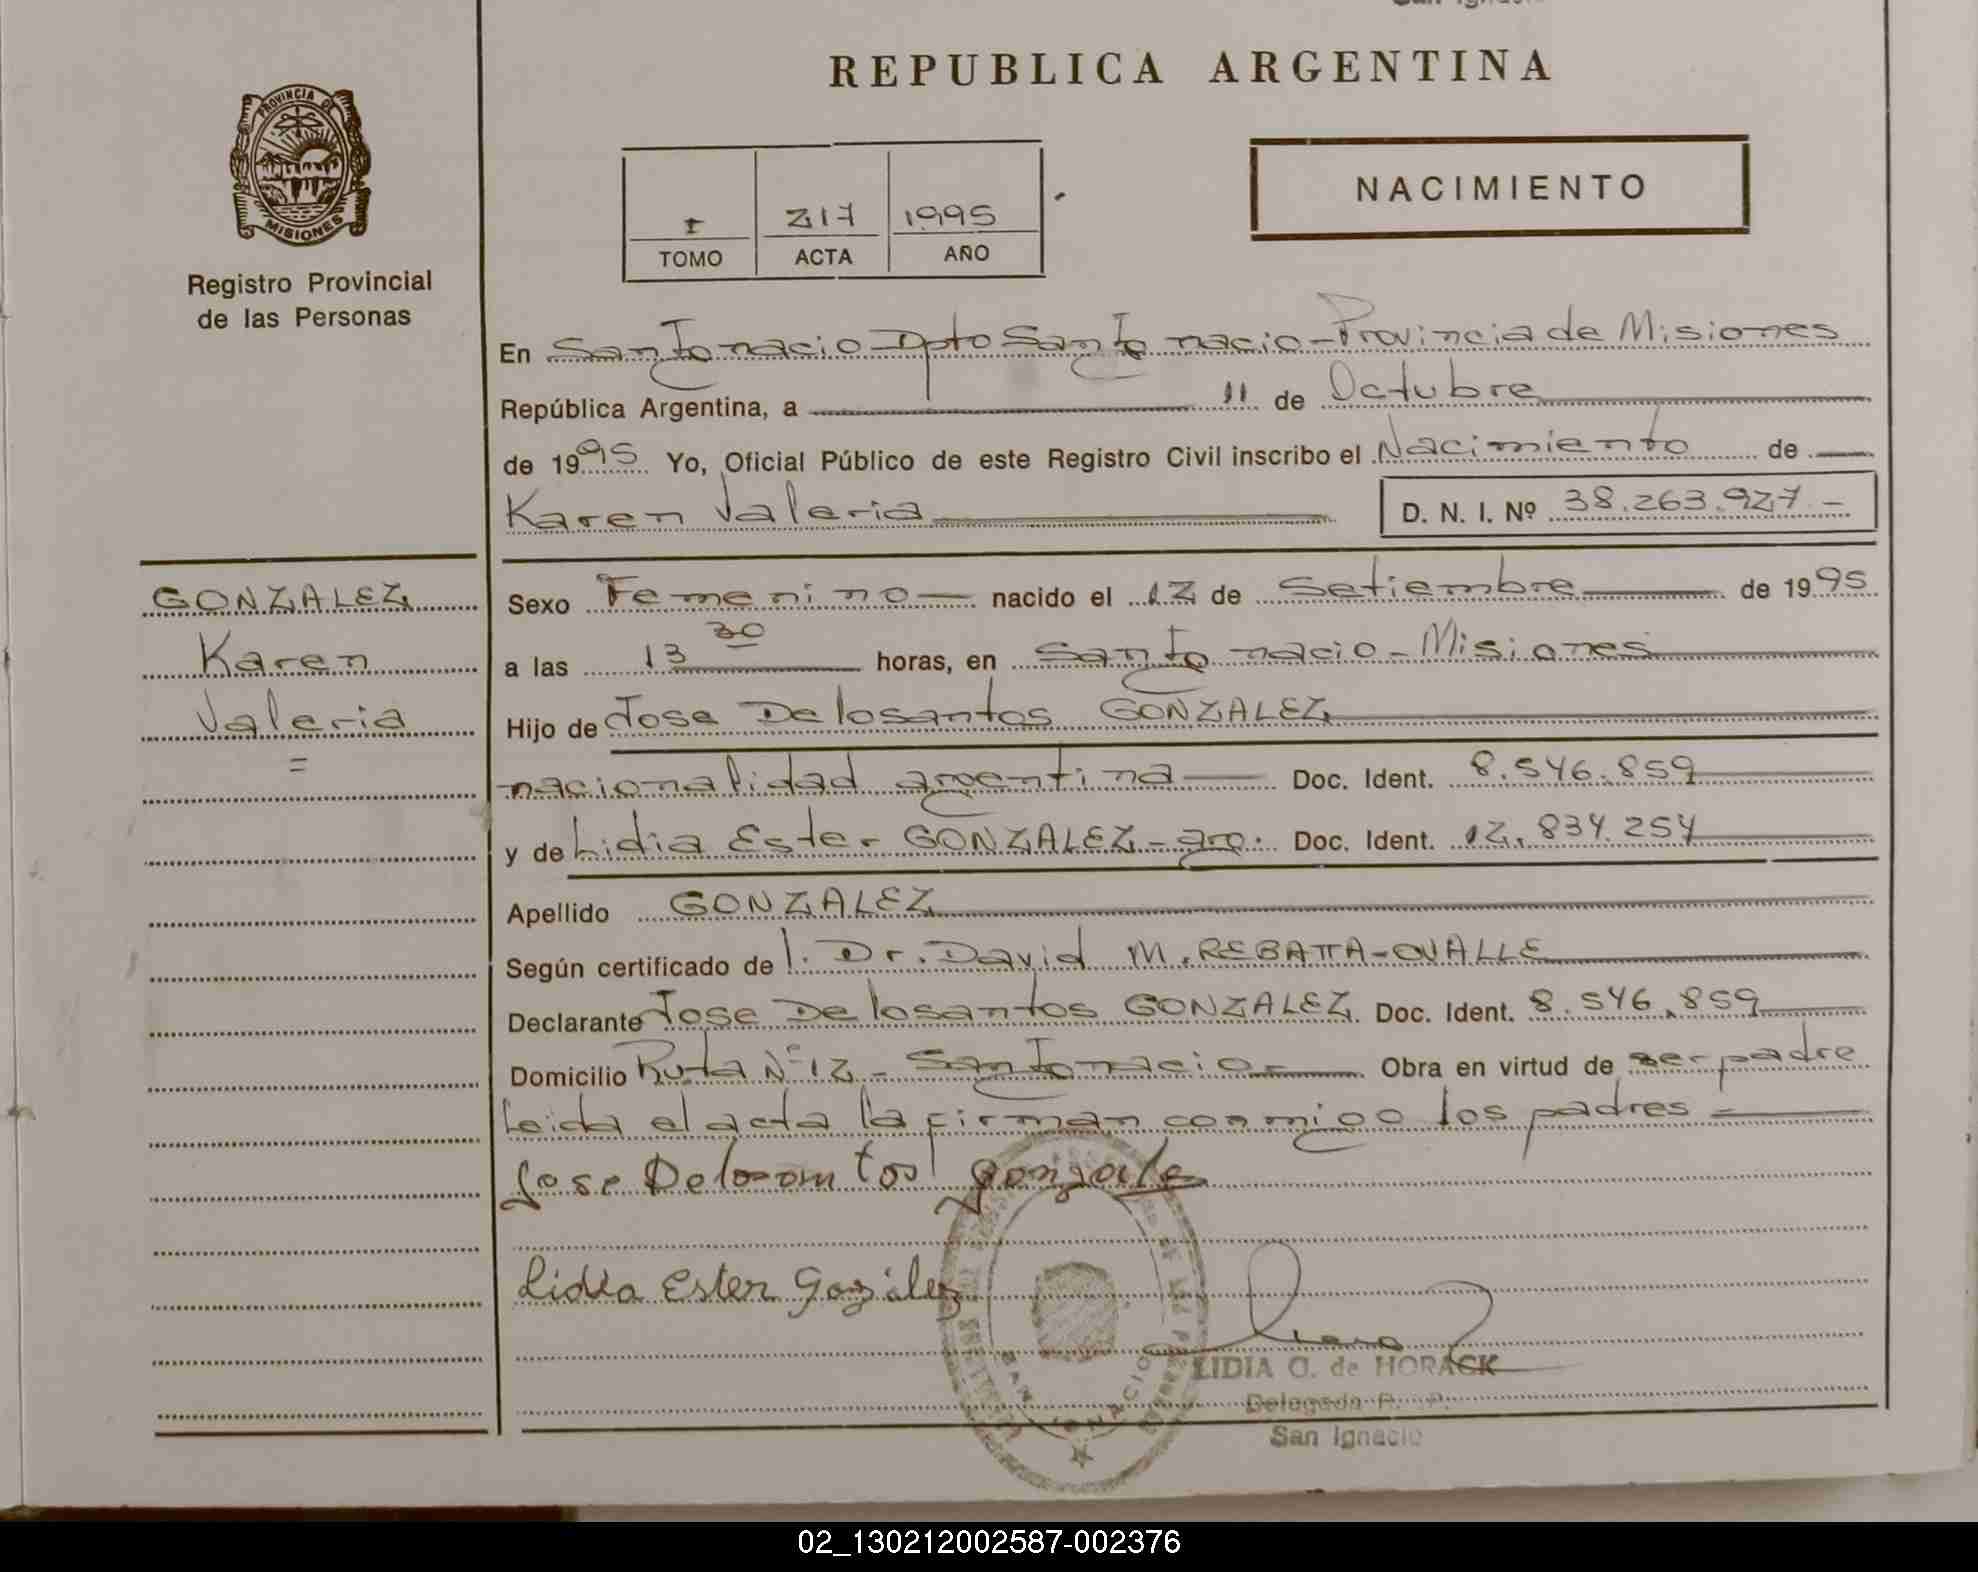 REPUBLICA ARGENTINA
PROVINCIA DE
MISIONES
Registro Provincial
de las Personas
I 217 1995
TOMO ACTA AÑO
NACIMIENTO
En San Ignacio Dpto San Ignacio - Provincia de Misiones
República Argentina, a 11 de Octubre
de 1995 Yo, Oficial Público de este Registro Civil inscribo el Nacimiento de
Karen Valeria D. N. I. Nº 38.263.927-
GONZALEZ
Karen
Valeria
=
Sexo Femenino nacido el 12 de Setiembre de 1995
a las 13 30 horas, en San Ignacio - Misiones
Hijo de Jose Delosantos GONZALEZ
nacionalidad argentina Doc. Ident. 8.546.859
y de Lidia Ester GONZALEZ - arg. Doc. Ident. 12.834.254
Apellido GONZALEZ
Según certificado de l. Dr. David M. REBATTA-OVALLE
Declarante Jose Delosantos GONZALEZ. Doc. Ident. 8.546.859
Domicilio Ruta Nº 12 - San Ignacio - Obra en virtud de ser padre
Leida el acta la firman conmigo los padres =
Jose Delosantos gonzalez
Lidia Ester Gozález
LIDIA O. de HORACK
Delegada R. P.
San Ignacio
SAN IGNACIO
02_130212002587-002376